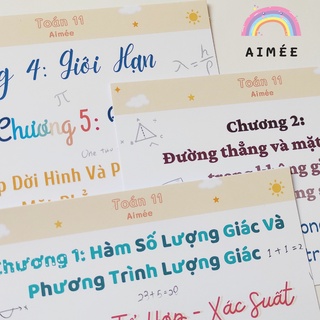 AIMÉE
Toán 11
Aimée
4: Giới Hạn
λ = h/p
π
Chương 5:
One
Toán 11
Aimée
Chương 2:
Đường thẳng và mặt
Dời Hình Và
Toán 11
Aimée
Chương 1: Hàm Số Lượng Giác Và
Phương Trình Lượng Giác
1+1=2
- Xác Suất